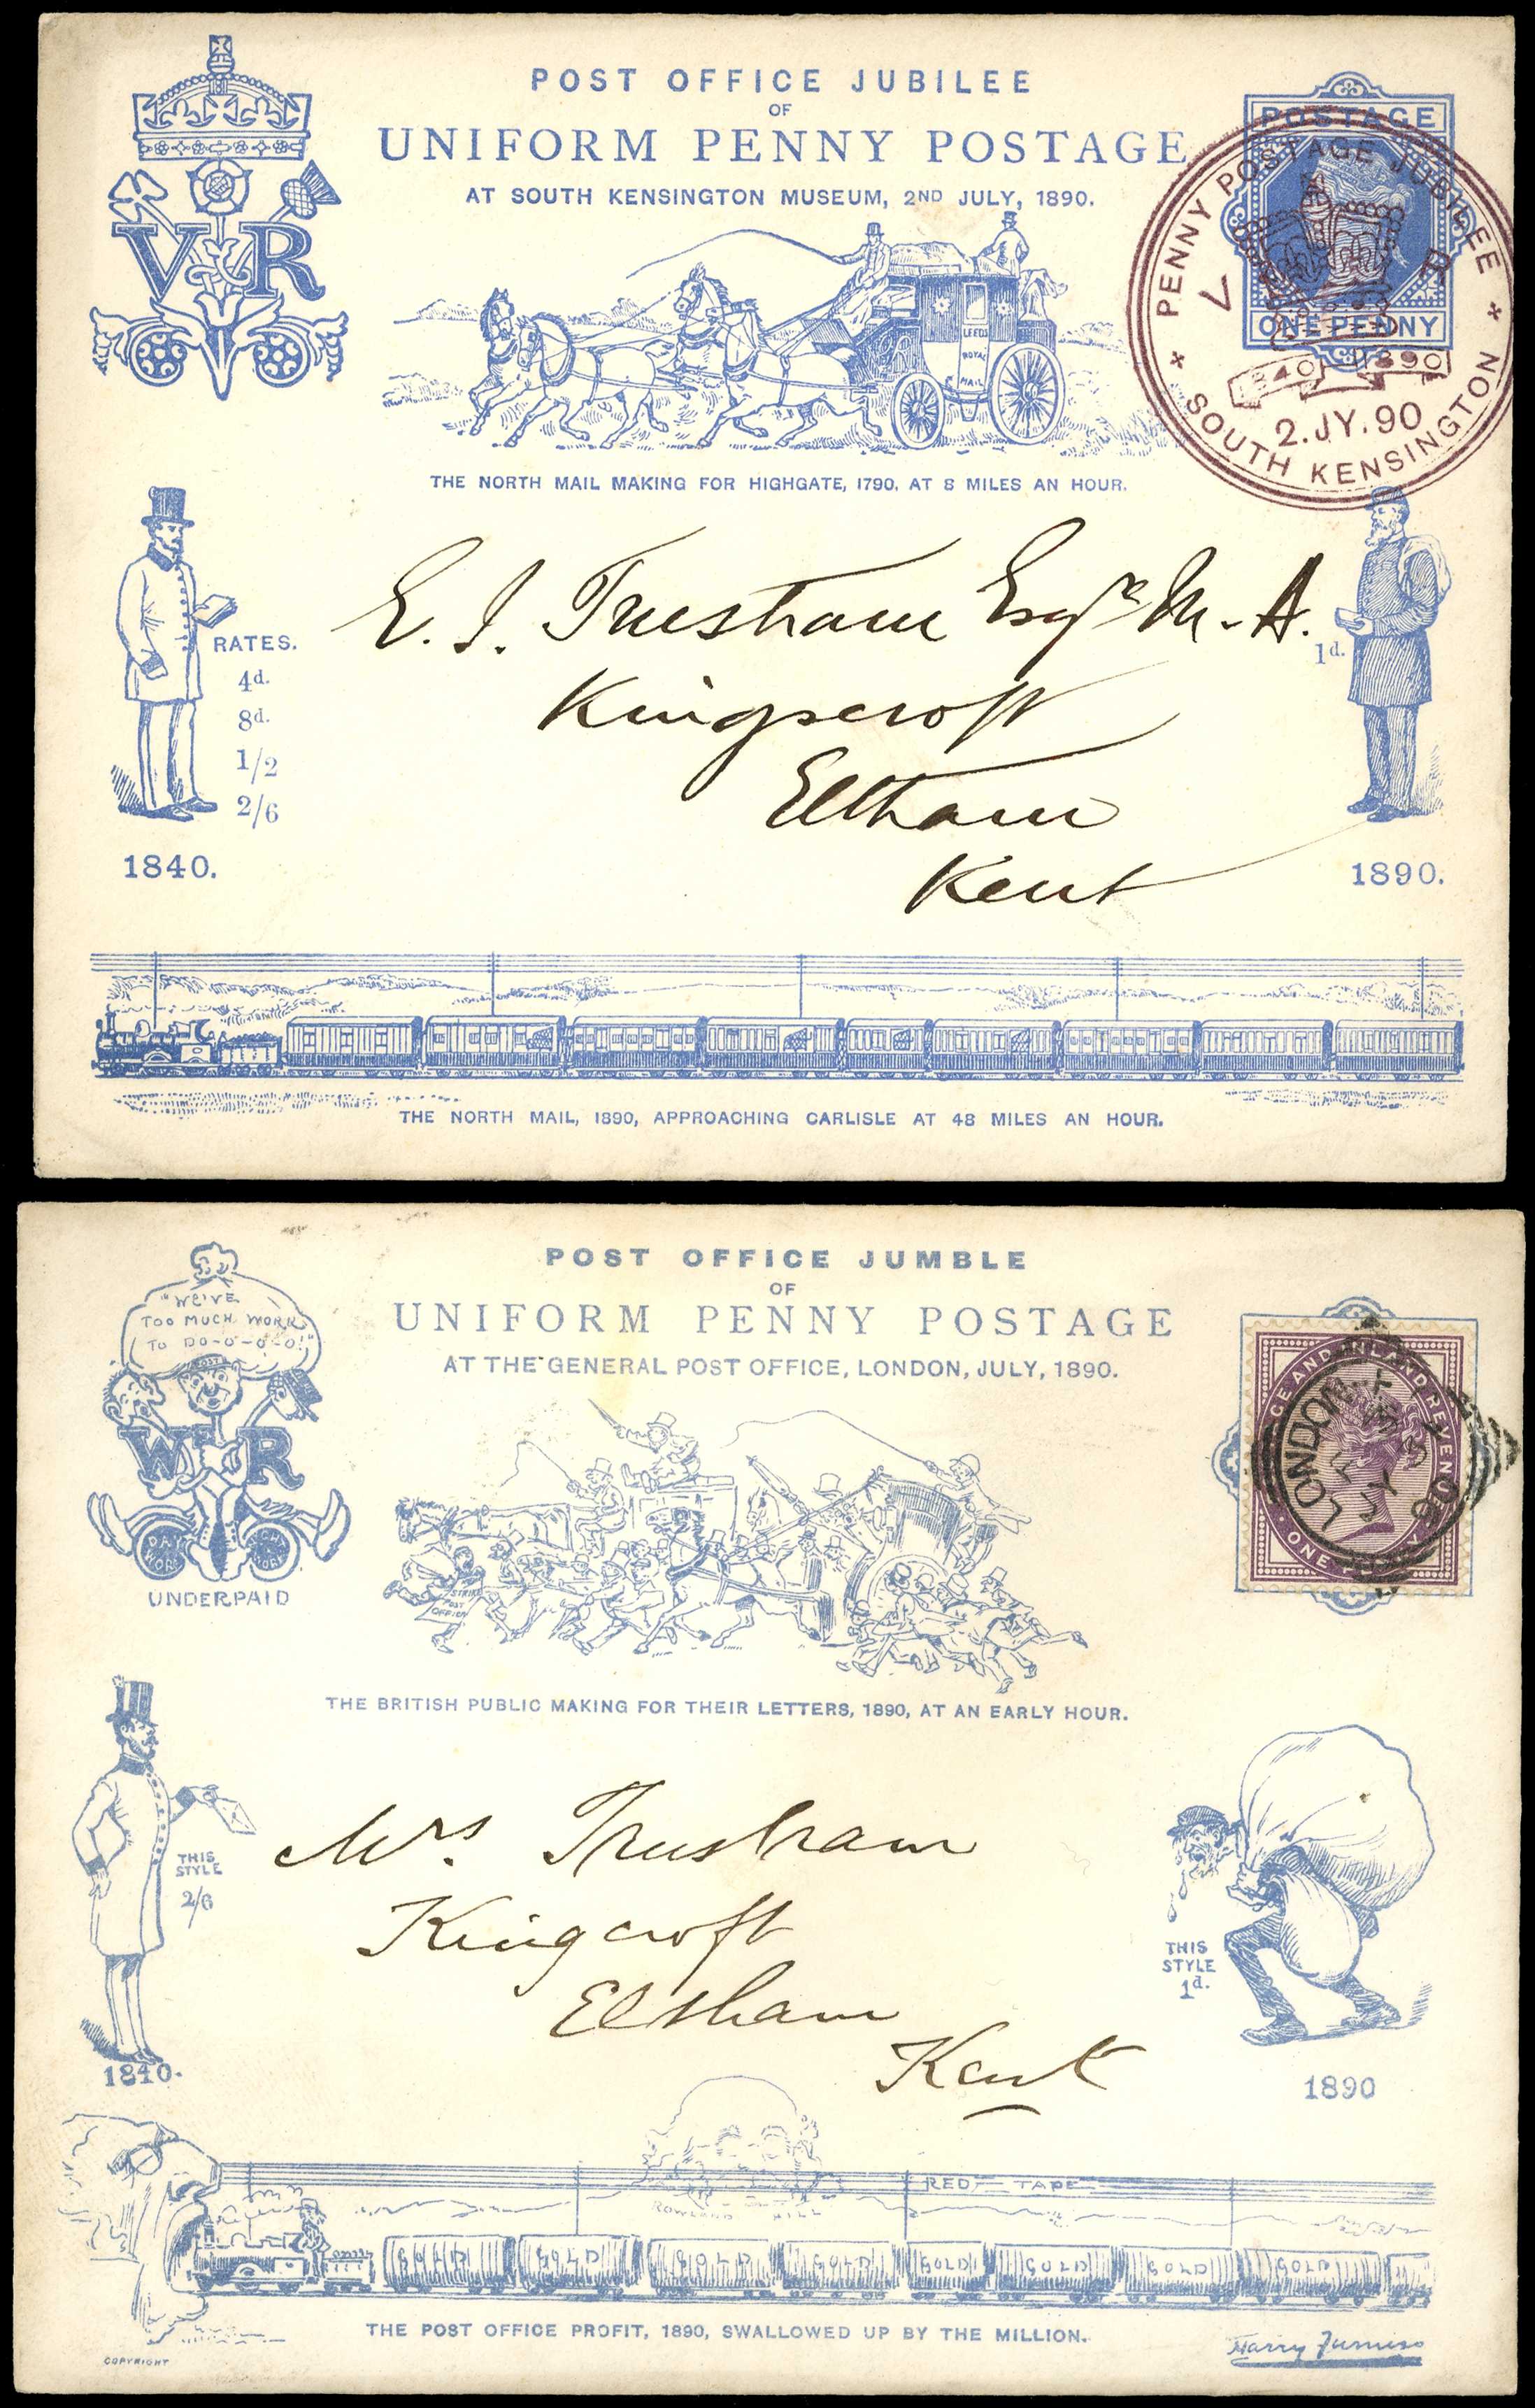 POST OFFICE JUBILEE
OF
UNIFORM PENNY POSTAGE
AT SOUTH KENSINGTON MUSEUM, 2ND JULY, 1890.
VR
POSTAGE
ONE PENNY
PENNY POSTAGE JUBILEE
V R
1840 1890
2.JY.90
SOUTH KENSINGTON
LEEDS
ROYAL
MAIL
THE NORTH MAIL MAKING FOR HIGHGATE, 1790, AT 8 MILES AN HOUR.
E. J. Trustram Esqre M.A.
Kingscroft
Eltham
Kent
RATES.
4d.
8d.
1/2
2/6
1840.
1d.
1890.
THE NORTH MAIL, 1890, APPROACHING CARLISLE AT 48 MILES AN HOUR.
POST OFFICE JUMBLE
OF
UNIFORM PENNY POSTAGE
AT THE GENERAL POST OFFICE, LONDON, JULY, 1890.
"WE'VE
TOO MUCH WORK
TO DO-O-O-O!"
POST
W R
DAY
WORK
WORK
UNDERPAID
LONDON
JY
90
ONE
STRIKE
POST
OFFICE
THE BRITISH PUBLIC MAKING FOR THEIR LETTERS, 1890, AT AN EARLY HOUR.
Mrs. Trustram
Kingcroft
Eltham
Kent
THIS
STYLE
2/6
1840.
THIS
STYLE
1d.
1890
RED TAPE
ROWLAND HILL
THE POST OFFICE PROFIT, 1890, SWALLOWED UP BY THE MILLION.
COPYRIGHT
Harry Furniss